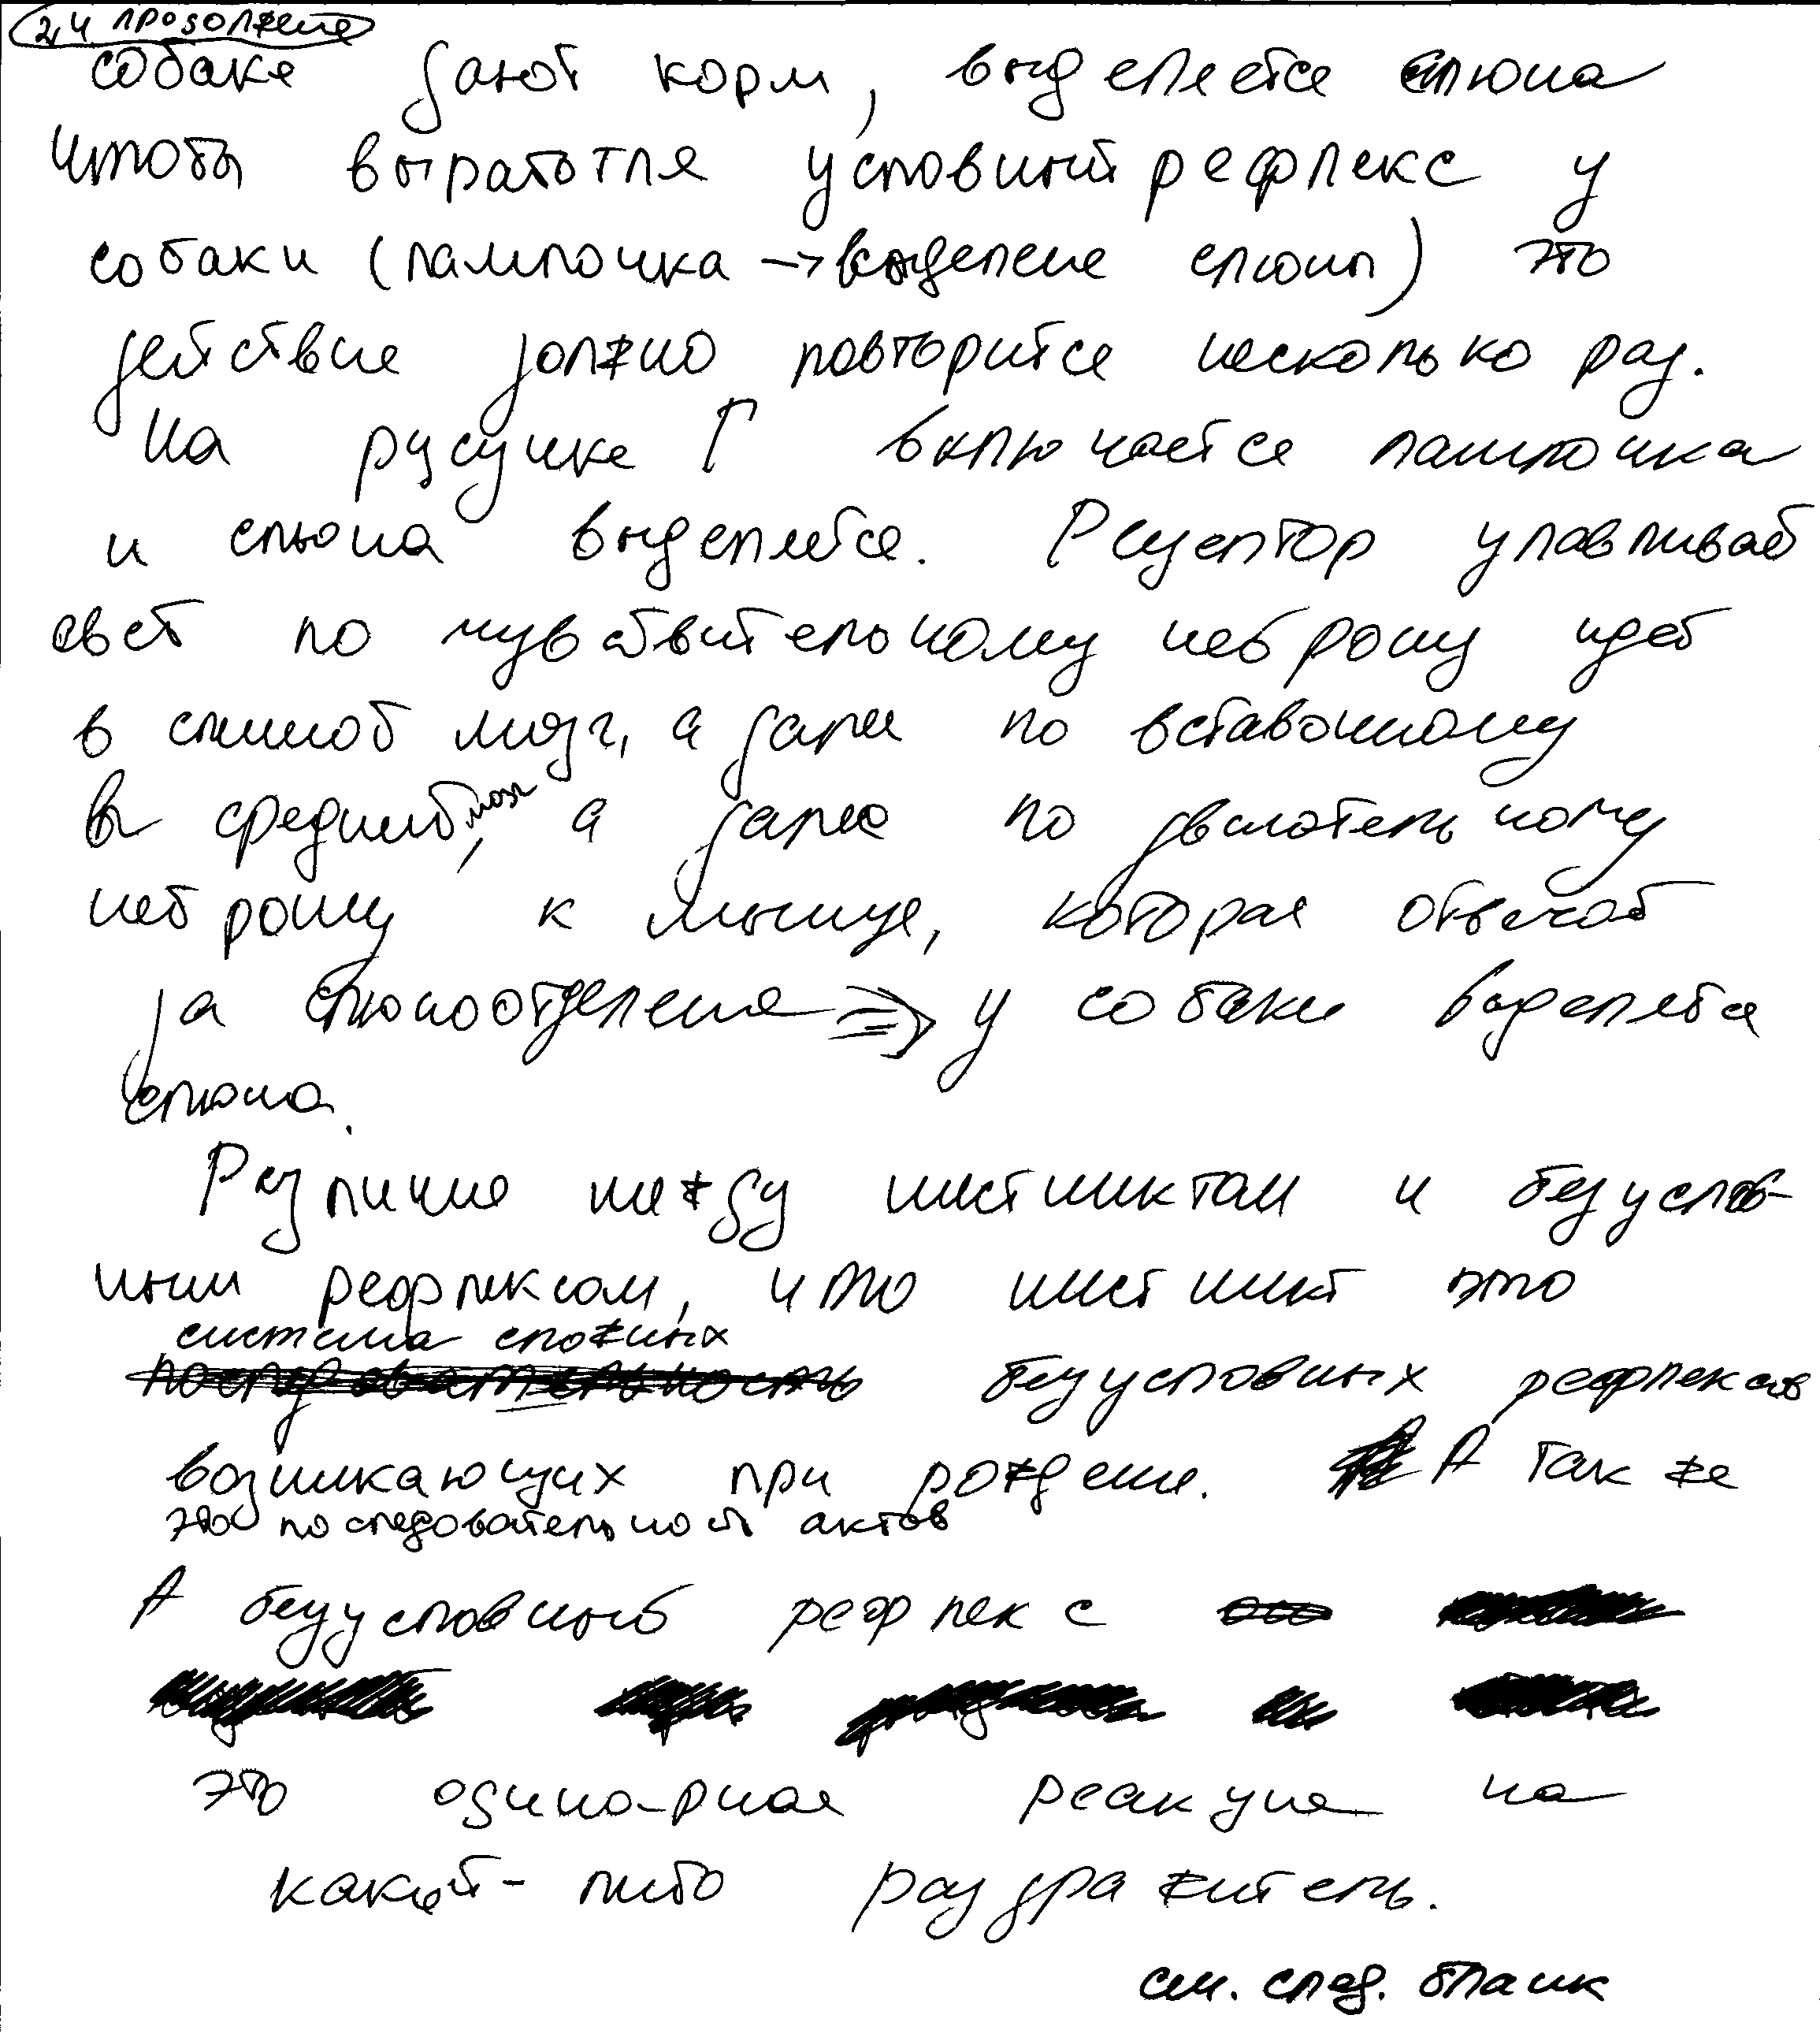 24 продолжение
собаке дают корм, выделяется слюна
чтобы выработался условный рефлекс у
собаки (лампочка → выделение слюны) это
действие должно повторится несколько раз.
На рисунке Г включается лампочка
и слюна выделяется. Рецептор улавливает
свет по чувствительному нейрону идет
в спинной мозг, а далее по вставочному
в средний мозг, а далее по двигательному
нейрону к мышце, которая отвечает
за слюноотделение ⇒ у собаки выделяется
слюна.
Различие между инстинктом и безуслов-
ным рефлексом, что инстинкт это
система сложных
безусловных рефлексов
возникающих при рождении. А так же
это последовательность актов
А безусловный рефлекс
это одинарная реакция на
какой-либо раздражитель.
см. след. бланк